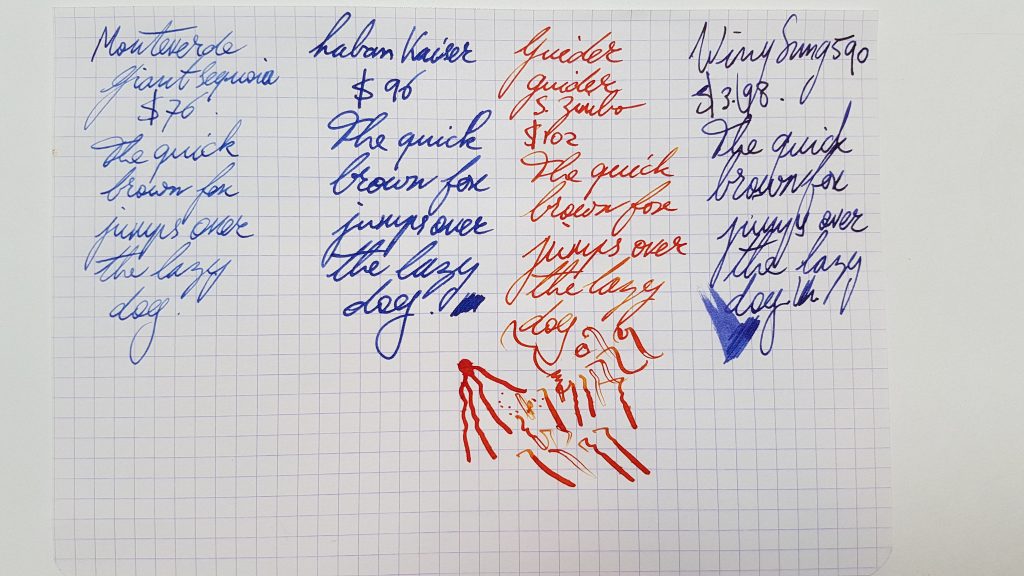 Monteverde
giant sequoia
$76.
The quick
brown fox
jumps over
the lazy
dog.
laban Kaiser
$96
The quick
brown fox
jumps over
the lazy
dog.
Guider
guider
S. Zimbo
$102
The quick
brown fox
jumps over
the lazy
dog
Wing Sung 590
$3.98.
The quick
brown fox
jumps over
the lazy
dog